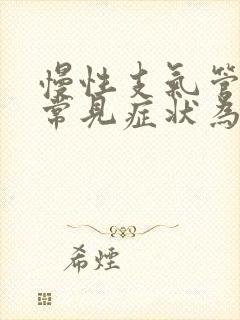 慢性支氣管
常見症狀為
希煙